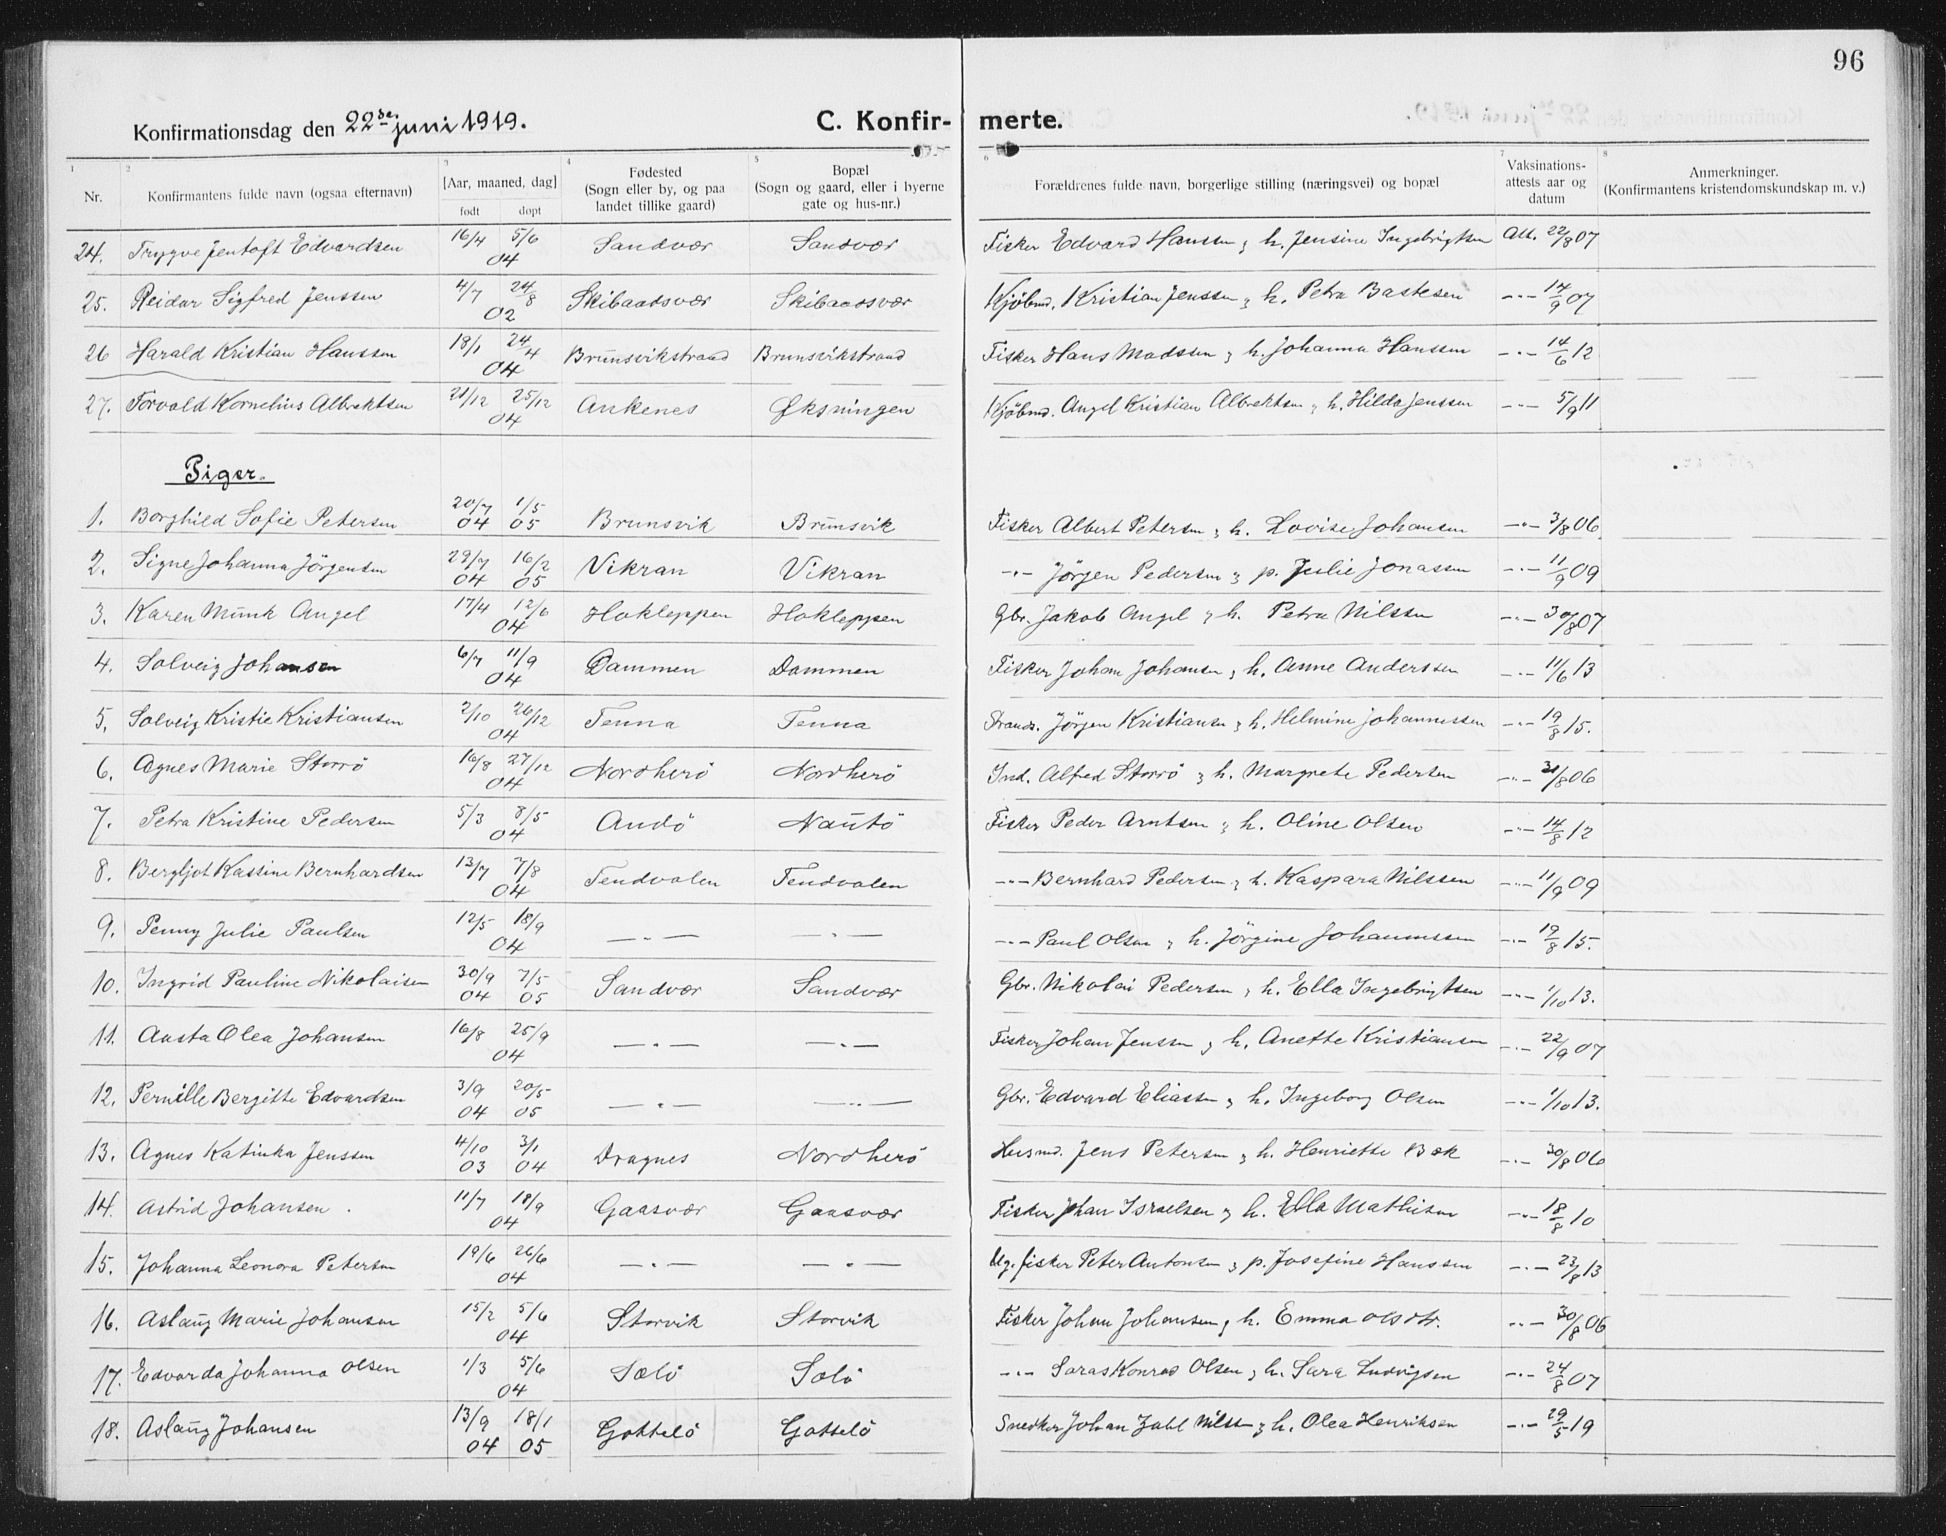 96
Konfirmationsdag den 22de juni 1919. C. Konfir- merte.
1 2 3 4 5 6 7 8
Nr. Konfirmantens fulde navn (ogsaa efternavn) [Aar, maaned, dag] født døpt Fødested (Sogn eller by, og paa landet tillike gaard) Bopæl (Sogn og gaard, eller i byerne gate og hus-nr.) Forældrenes fulde navn, borgerlige stilling (næringsvei) og bopæl Vaksinations-attests aar og datum Anmerkninger. (Konfirmantens kristendomskundskap m. v.)
24. Trygve Jentoft Edvardsen 16/4 5/6 04 Sandvær Sandvær Fisker Edvard Hanssen & h. Jensine Ingebrigtsen Att. 22/8 07
25. Reidar Sigfred Jenssen 4/7 24/8 02 Skibaadsvær Skibaadsvær Kjøbmd. Kristian Jenssen & h. Petra Bastesen -"- 14/9 07
26 Harald Kristian Hanssen 18/1 24/4 04 Brunsvikstrand Brunsvikstrand Fisker Hans Madssen & h. Johanna Hanssen -"- 14/6 12
27. Torvald Kornelius Albrektsen 21/12 25/12 04 Ankenes Øksningen Kjøbmd. Angel Kristian Albrektsen & h. Hilda Jenssen -"- 5/9 11
Piger.
1. Borghild Sofie Petersen 20/7 04 1/5 05 Brunsvik Brunsvik Fisker Albert Petersen & h. Lovise Johansen -"- 3/8 06
2. Signe Johanna Jörgensen 29/7 04 16/2 05 Vikran Vikran -"- Jörgen Pedersen & p. Julie Jonassen -"- 11/9 09
3. Karen Munk Angel 17/4 12/6 04 Hokleppen Hokleppen Gbr. Jakob Angel & h. Petra Nilssen -"- 30/8 07
4. Solveig Johansen 6/7 11/9 04 Dammen Dammen Fisker Johan Johansen & h. Anne Anderssen -"- 11/6 13
5. Solveig Kristie Kristiansen 2/10 26/12 04 Tenna Tenna Strands. Jörgen Kristiansen & h. Helmine Johannessen -"- 19/8 15.
6. Agnes Marie Storrö 16/8 27/12 04 Nordherö Nordherö Ind. Alfred Storrö & h. Margrete Pedersen -"- 31/8 06
7. Petra Kristine Pedersen 5/3 8/5 04 Andö Nautö Fisker Peder Arntsen & h. Oline Olsen -"- 14/8 12
8. Bergljot Kassine Bernhardsen 13/7 7/8 04 Tendvalen Tendvalen -"- Bernhard Pedersen & h. Kaspara Nilssen -"- 11/9 09
9. Penny Julie Paulsen 12/5 18/9 04 -"- -"- -"- Paul Olsen & h. Jörgine Johannessen -"- 19/8 15.
10. Ingrid Pauline Nikolaisen 30/9 04 7/5 05 Sandvær Sandvær Gbr. Nikolai Pedersen & h. Ella Ingebrigtsen -"- 1/10 13.
11. Aasta Olea Johansen 16/8 25/9 04 -"- -"- Fisker Johan Jenssen & h. Anette Kristiansen -"- 22/9 07
12. Pernille Bergitte Edvardsen 3/9 04 20/5 05 -"- -"- Gbr. Edvard Eliassen & h. Ingeborg Olsen -"- 1/10 13.
13. Agnes Katinka Jenssen 4/10 03 3/1 04 Dragnes Nordherö Husmd. Jens Petersen & h. Henriette Bæk -"- 30/8 06
14. Astrid Johansen 11/7 18/9 04 Gaasvær Gaasvær Fisker Johan Israelsen & h. Ella Mathisen -"- 18/8 10
15. Johanna Leonora Petersen 19/6 26/6 04 -"- -"- Ug. fisker Peter Antonsen & p. Josefine Hanssen -"- 23/8 13
16. Aslaug Marie Johansen 15/2 5/6 04 Storvik Storvik Fisker Johan Johansen & h. Emma Olsdtr. -"- 30/8 06
17. Edvarda Johanna Olsen 1/3 5/6 04 Sölö Sölö -"- Saras Konrad Olsen & h. Sara Ludvigsen -"- 24/8 07
18. Aslaug Johansen 13/9 04 18/1 05 Gåsselö Gåsselö Snedker Johan Zahl Nilssen & h. Olea Henriksen -"- 29/5 19